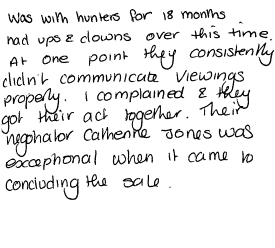 Was with hunters for 18 months.
had ups & downs over this time.
At one point they consistently
didn't communicate viewings
properly. I complained & they
got their act together. Their
negotiator Catherine Jones was
exceptional when it came to
concluding the sale.